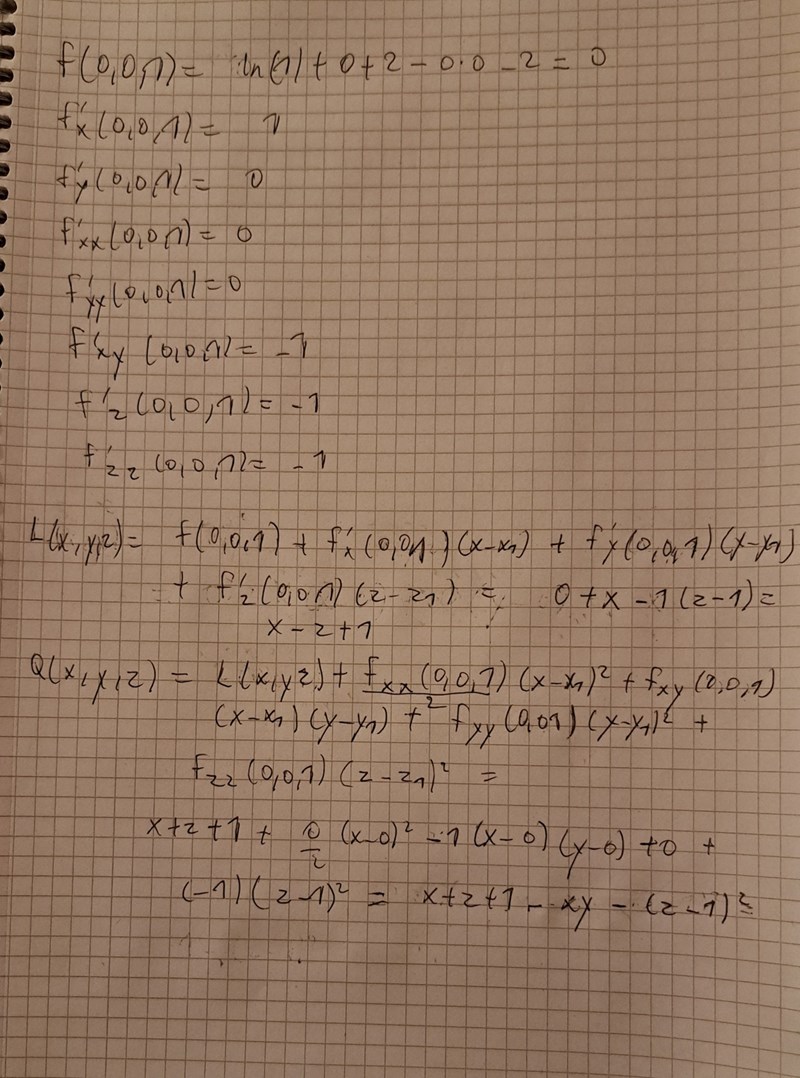 f(0,0,1) = ln(1) + 0 + 2 - 0·0 - 2 = 0
f'x (0,0,1) = 1
f'y (0,0,1) = 0
f'xx (0,0,1) = 0
f'yy (0,0,1) = 0
f'xy (0,0,1) = -1
f'z (0,0,1) = -1
f'zz (0,0,1) = -1
L(x,y,z) = f(0,0,1) + f'x (0,0,1)(x-x1) + f'y (0,0,1)(y-y1)
+ f'z (0,0,1)(z-z1) = 0 + x - 1(z-1) =
x - z + 1
Q(x,y,z) = L(x,y,z) + fxx(0,0,1)/2 (x-x1)² + fxy (0,0,1)
(x-x1)(y-y1) + fyy (0,0,1)(y-y1)² +
fzz (0,0,1)(z-z1)² =
x+z+1 + 0/2 (x-0)² - 1(x-0)(y-0) + 0 +
(-1)(z-1)² = x+z+1 - xy - (z-1)²